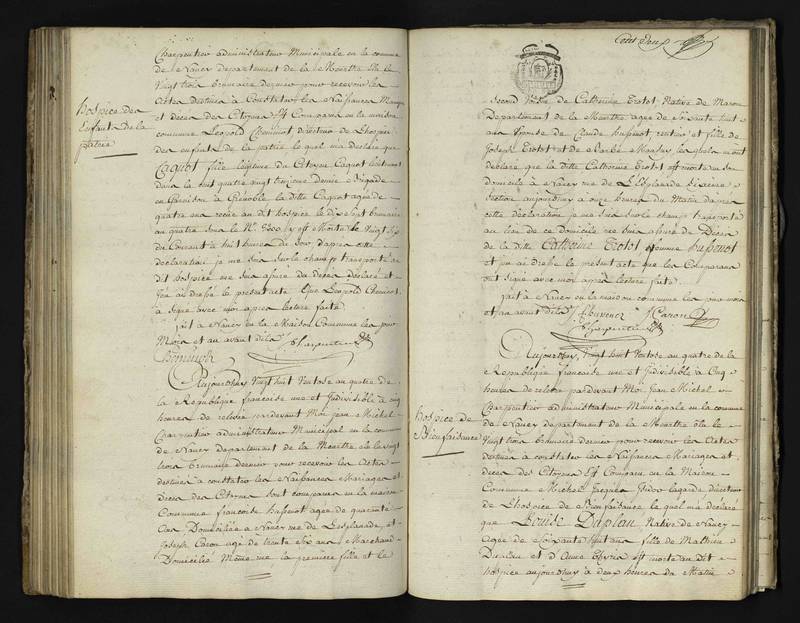 Charpentier administrateur Municipale en la commune
de Nancy departement de la Meurthe Elu le
Vingt trois brumaire dernier pour recevoir les
Actes destinés a Constater les Naissances Mariages
et décès des Citoyens Est Comparu en la maison
commune Leopold Cheminot directeur de L'hospice
des enfants de la patrie le quel m'a declaré que
Caquot fille legitime du Citoyen Caquot
dans la huit quatre vingt treizieme demie Brigade
en Garnison a Grenoble la ditte Caquot agée de
quatre ans recue au dit hospice le dix Sept brumaire
an quatre Sous le N.º est Morte le Vingt Six
du Courant a huit heures du Soir, d'apres cette
declaration je me Suis Sur le champ transporté au
dit hospice me Suis assuré du decès declaré et
J'en ai dressé le present acte Que Leopold Cheminot
a Signé avec moi apres lecture faite
fait a Nancy en la Maison Commune les jour
Mois et an avant dits Charpentier
Cheminot
Hospice des
Enfants de la
patrie
Aujourdhuy Vingt huit Ventose an quatre de
la République francaise une et Indivisible a cinq
heures de relevée pardevant Moi jean Michel
Charpentier administrateur Municipal en la commune
de Nancy departement de la Meurthe elu le vingt
trois brumaire dernier pour recevoir les Actes
destinés a constater les Naissances Mariages et
décès des Citoyens sont comparus en la maison
Commune francoise hussenot agée de quarante
ans Domiciliée a Nancy rue de L'esplanade, et
Joseph Caron agé de trente Six ans Marchand
Domicilié Même rue, la premiere fille et le
Cent Deux
second de Catherine Trotot Native de
Departement de la Meurthe agée de Soixante huit
ans Epouse de Claude hussenot, rentier et fille de
Joseph Trotot et de Barbe les quels m'ont
declaré que la ditte Catherine Trotot est morte en Son
domicile a Nancy rue de L'Esplanade Sixieme
Section aujourdhuy a onze heures du Matin d'apres
cette déclaration je me Suis Sur le champ transporté
au lieu de ce domicile me Suis assuré du Décès
de la ditte Catherine Trotot femme hussenot
et j'en ai dressé le present acte que les Comparans
ont Signé avec moi apres lecture faite
fait a Nancy en la maison commune les jour mois
et an avant dits f hussenot J Caron
Charpentier
Aujourdhuy, Vingt huit Ventose an quatre de la
République francaise une et Indivisible a Cinq
heures de relevée pardevant Moi Jean Michel
Charpentier administrateur Municipale en la commune
de Nancy departement de la Meurthe Elu le
Vingt trois brumaire dernier pour recevoir les Actes
destinés a constater les Naissances Mariages et
décès des Citoyens Est Comparu en la Maison
Commune Michel Jacques Lagarde directeur
de L'hospice de Bienfaisance le quel m'a declaré
que Louise Duplan Native de Nancy
Agée de Soixante huit ans fille de Mathieu
Duplan et d'Anne est morte au dit
hospice aujourdhuy a deux heures du Matin
Hospice de
Bienfaisance